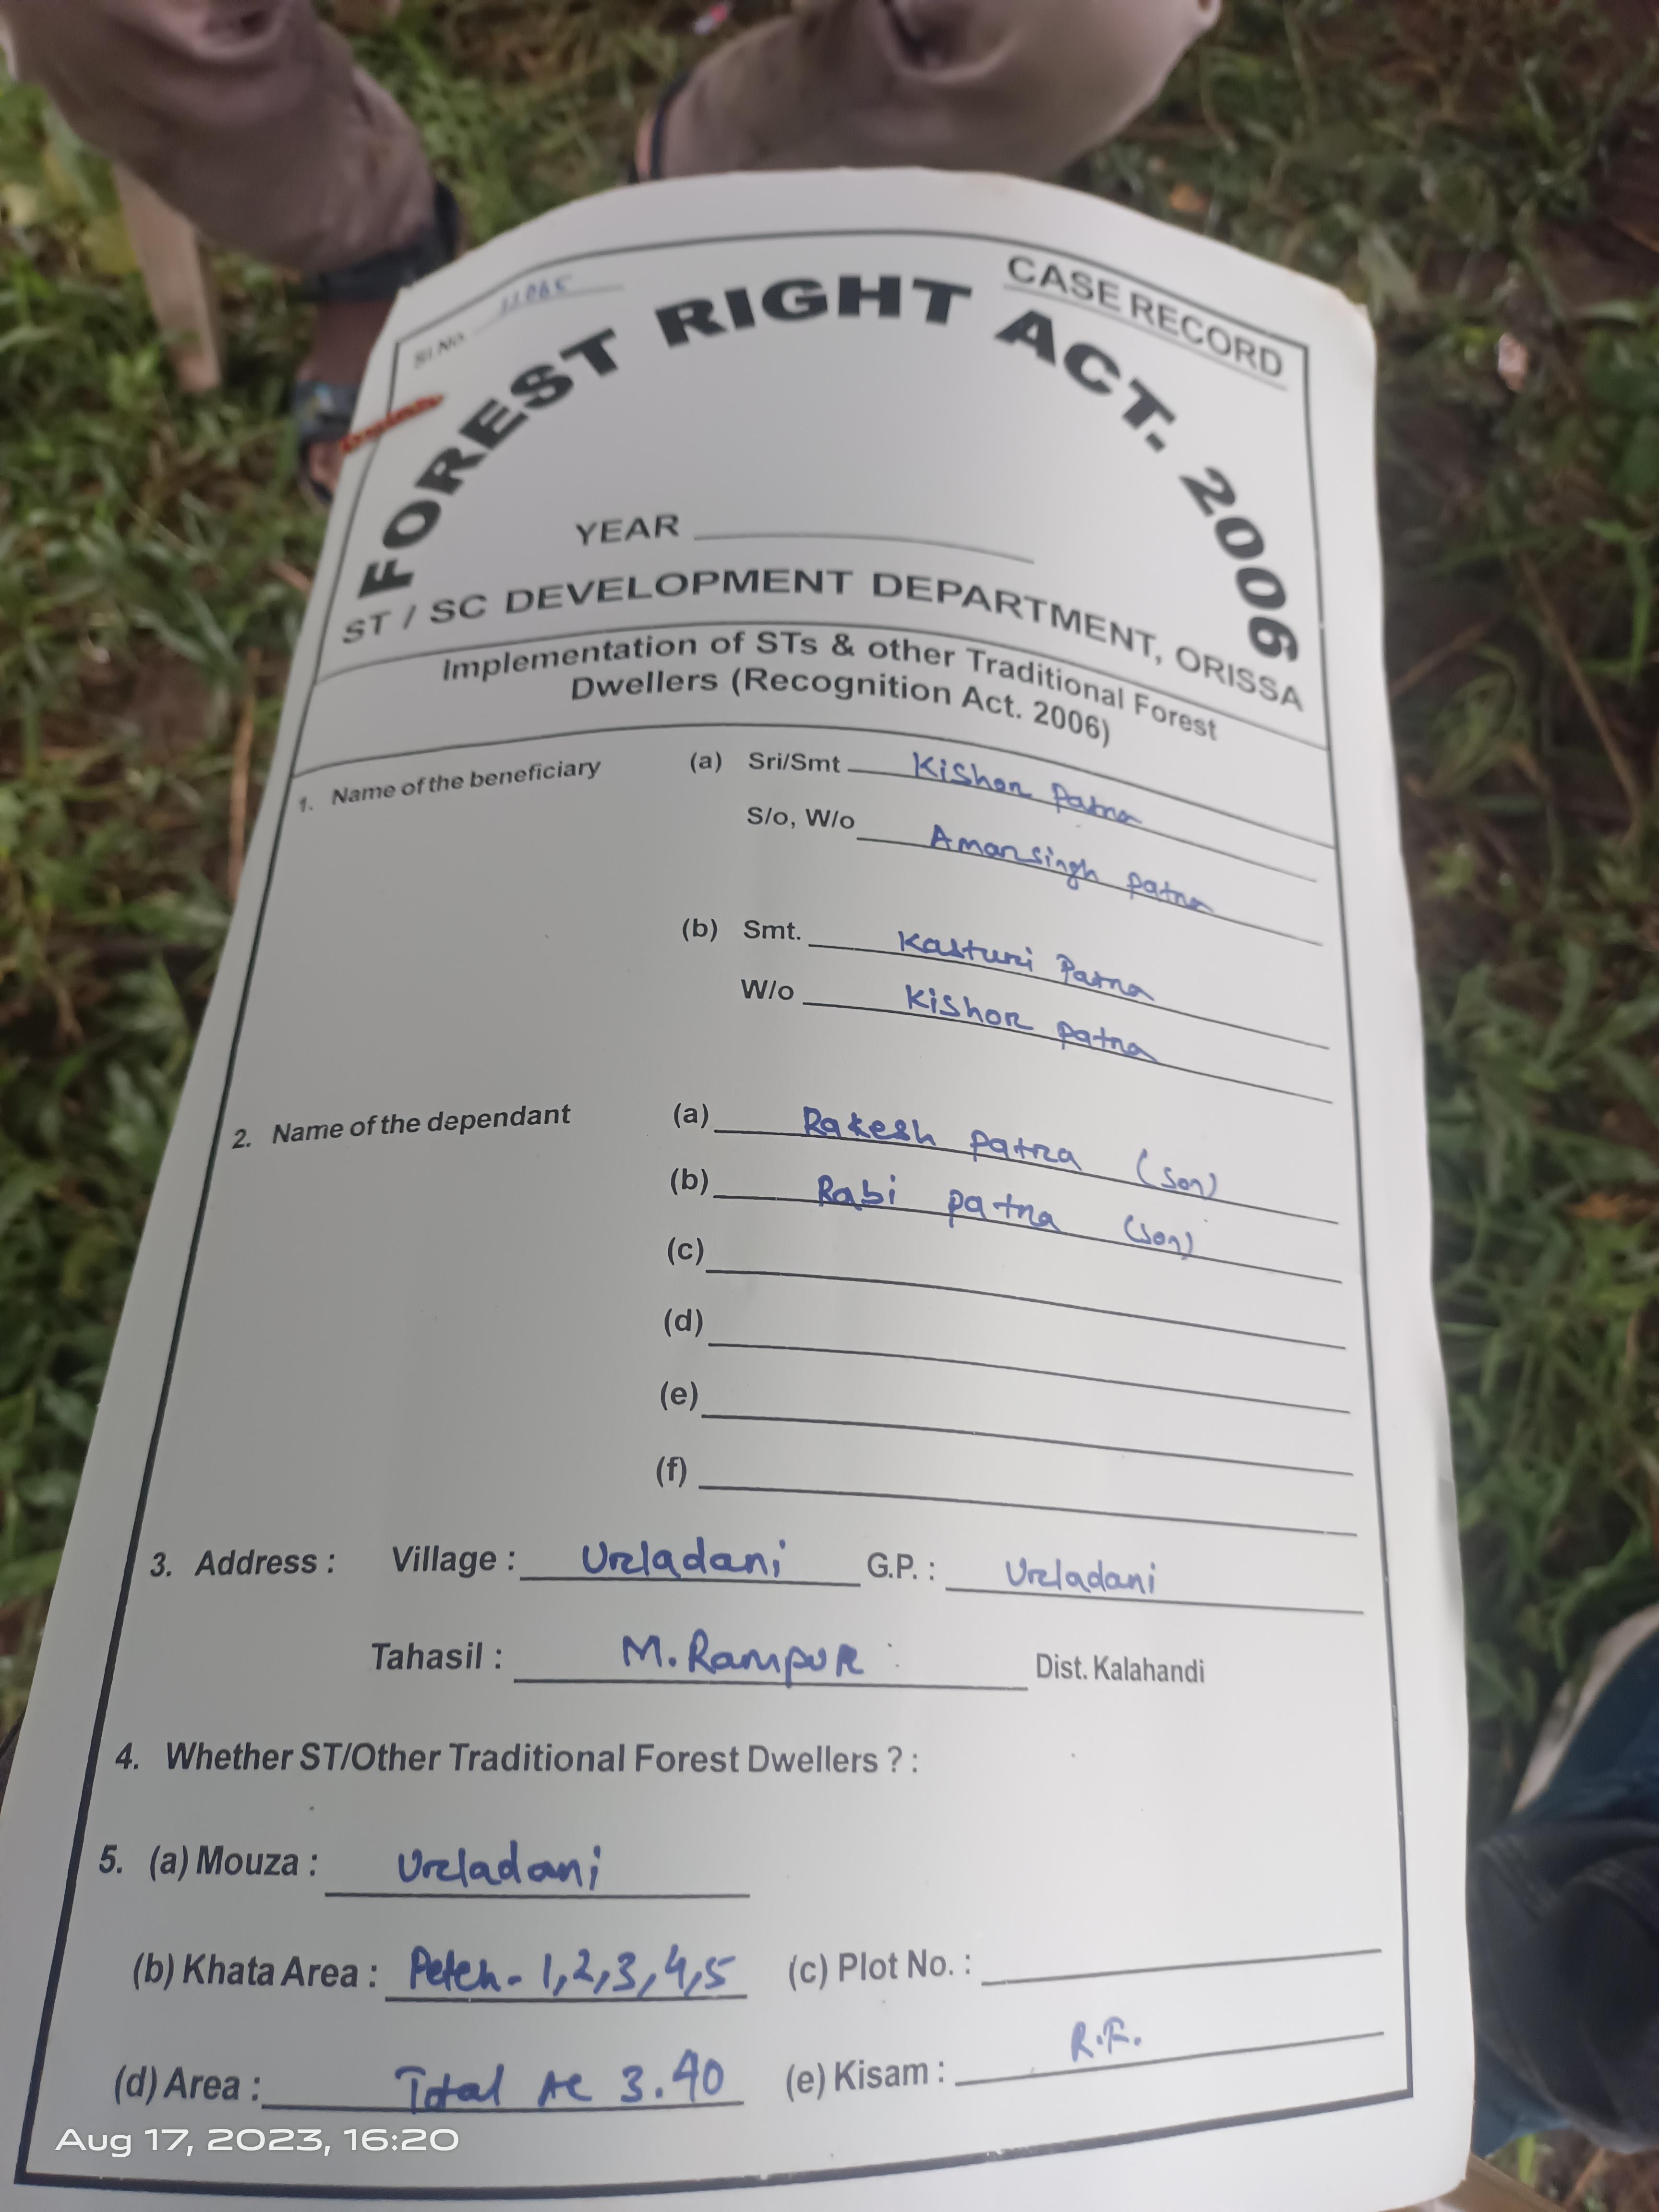 CASE RECORD
Sl.No.
FOREST RIGHT ACT. 2006
YEAR
ST / SC DEVELOPMENT DEPARTMENT, ORISSA
Implementation of STs & other Traditional Forest
Dwellers (Recognition Act. 2006)
1. Name of the beneficiary (a) Sri/Smt Kishor Patra
S/o, W/o Amarsingh patra
(b) Smt. Kasturi Patra
W/o Kishor patra
2. Name of the dependant (a) Rakesh patra (son)
(b) Rabi patra (son)
(c)
(d)
(e)
(f)
3. Address : Village : Urladani G.P. : Urladani
Tahasil : M.Rampur Dist. Kalahandi
4. Whether ST/Other Traditional Forest Dwellers ? :
5. (a) Mouza : Urladani
(b) Khata Area : 1,2,3,4,5 (c) Plot No. :
(d) Area : Total Ac 3.40 (e) Kisam : R.F.
Aug 17, 2023, 16:20